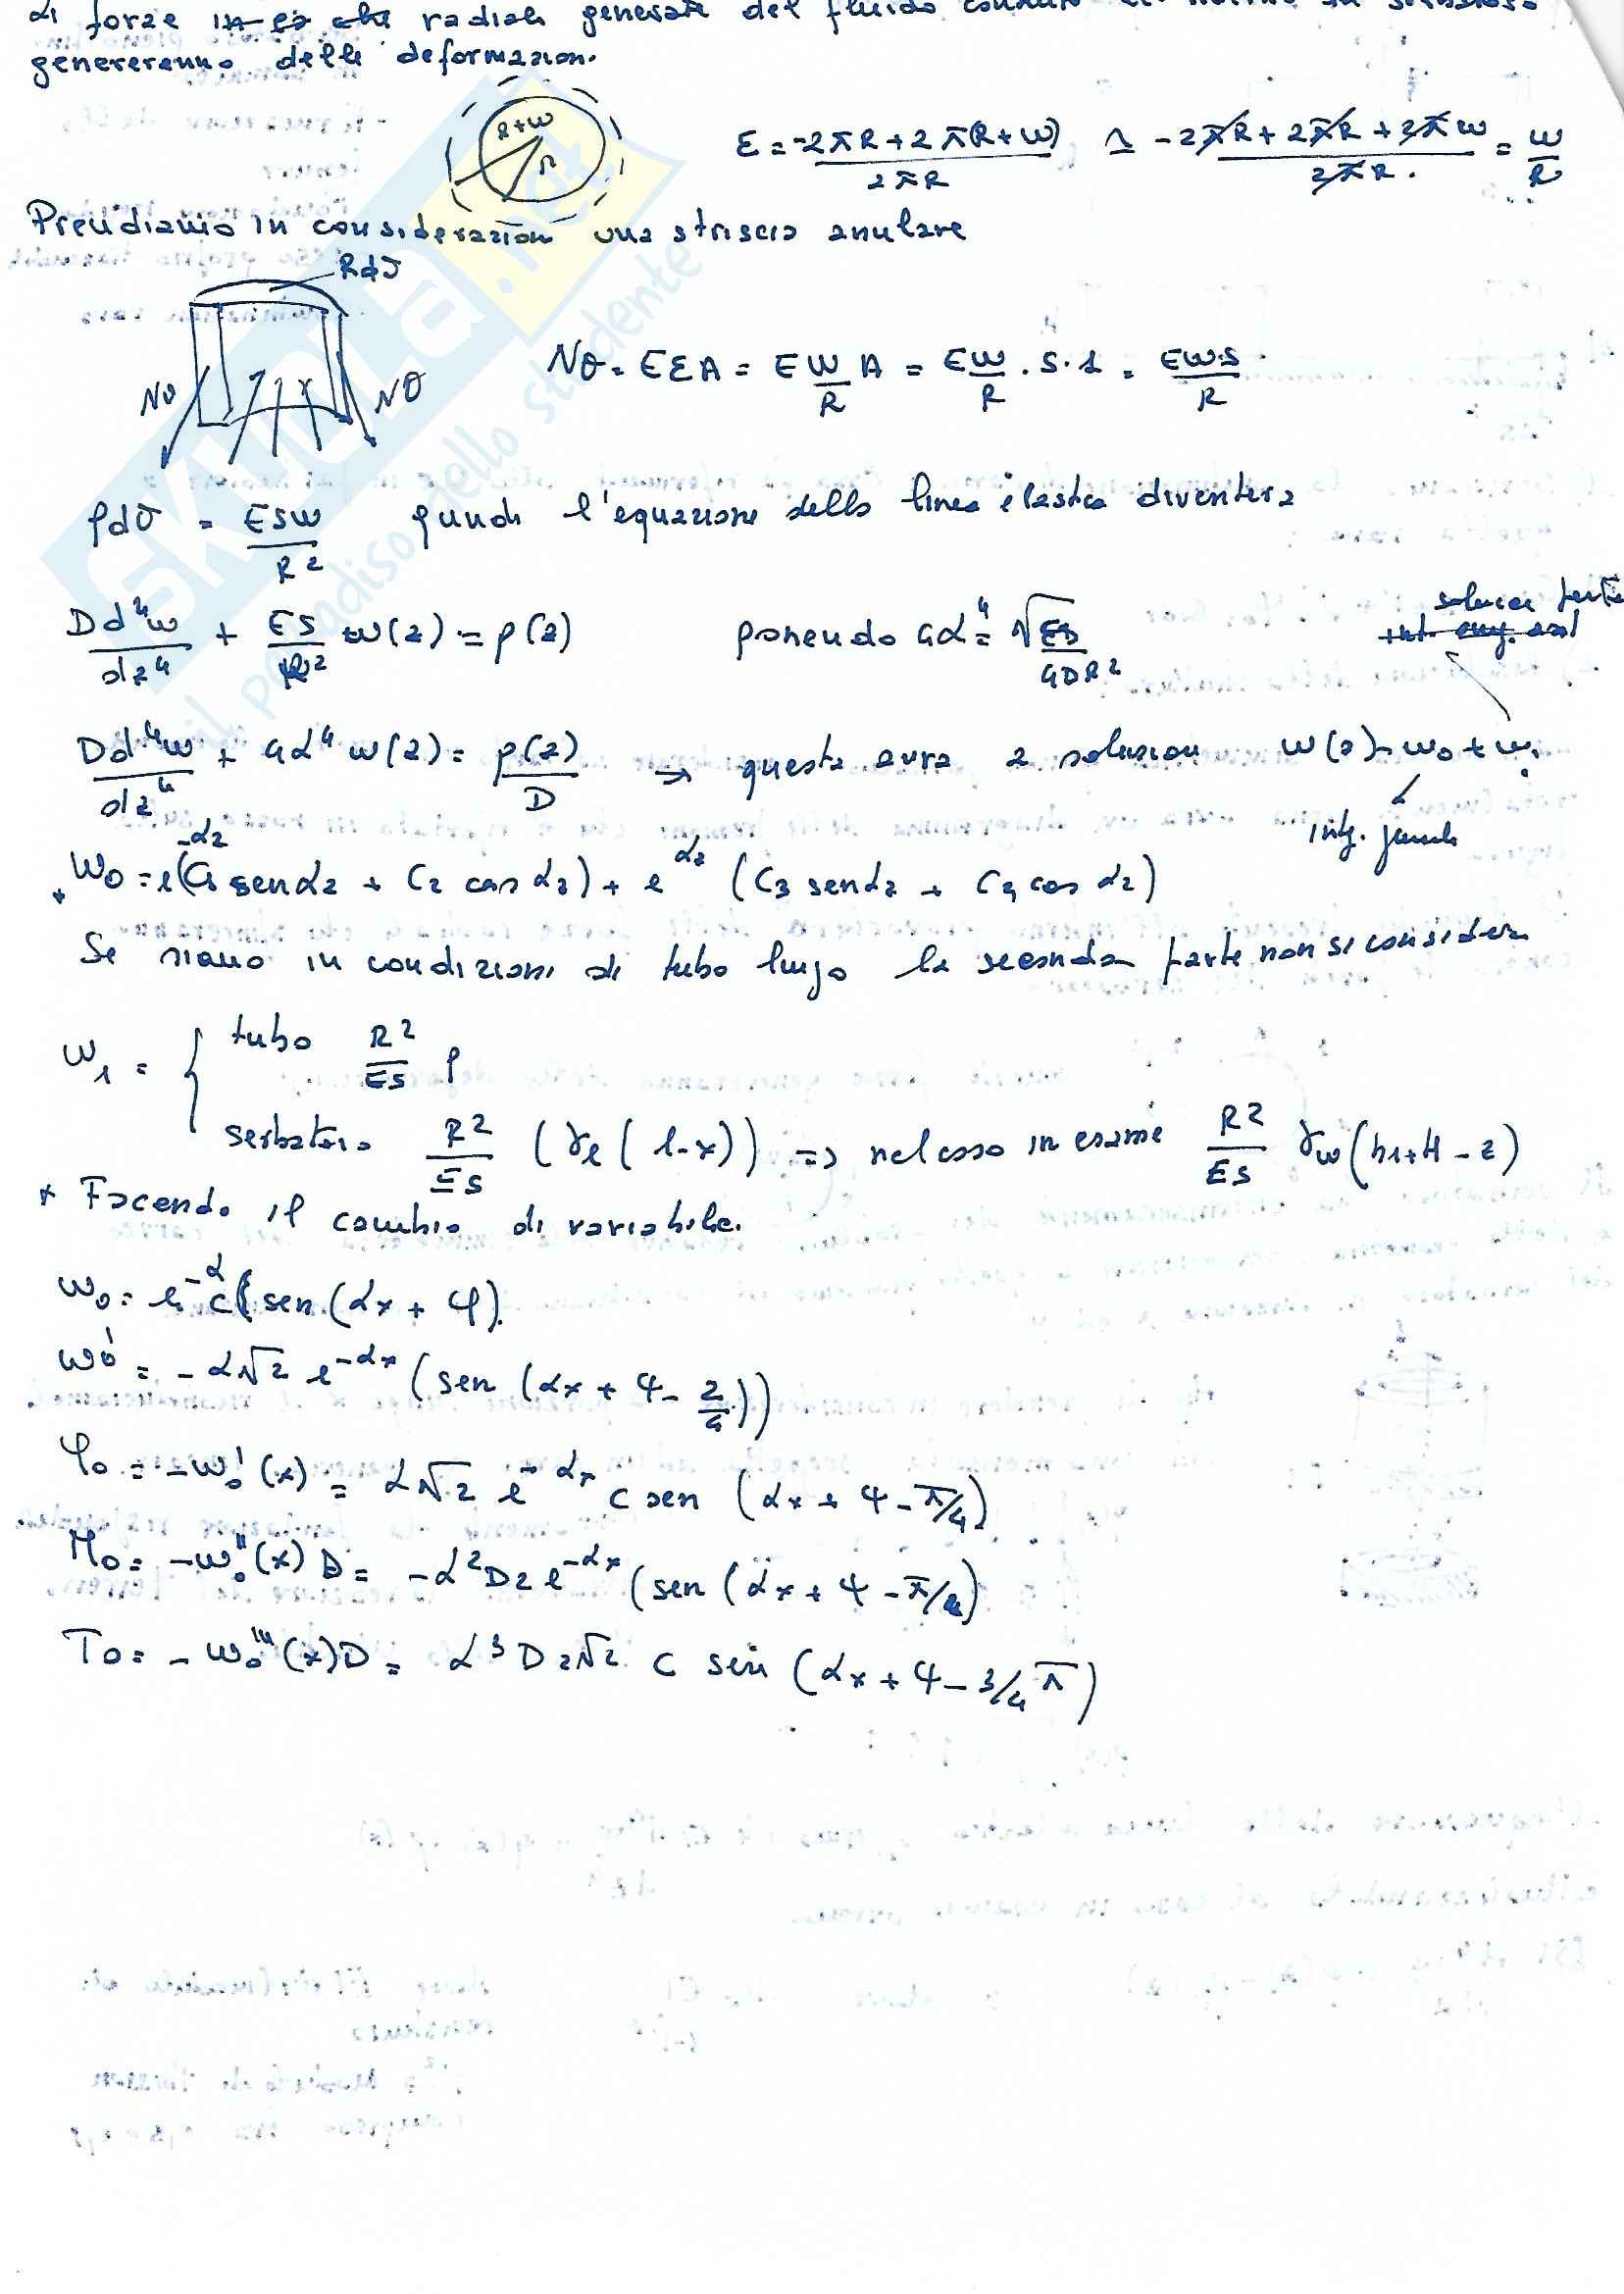 di forze in es che radiali generate del fluido
genereranno delle deformazion.
R+W
R
ε = -2πR + 2π(R+W) / 2πR ≃ -2πR + 2πR + 2πW / 2πR. = W/R
Prendiamo in considerazion una striscia anulare
Rdϑ
Nθ Nθ
Nθ = EεA = E W/R A = EW/R . S.1 = EWS/R
pdϑ = ESW/R² quindi l'equazione della linea elastica diventera
Dd⁴w/dz⁴ + ES/R² w(z) = p(z) ponendo 4α =⁴√ES/4DR²
Dd⁴w/dz⁴ + 4α⁴ w(z) = p(z)/D → questa avra 2 soluzion w(z) = w0 + w1
integ. gener
* W0 = e^-αz (C1 senαz + C2 cos αz) + e^αz (C3 senαz + C4 cos αz)
Se siamo in condizioni di tubo lungo la seconda parte non si consider
W1 = { tubo R²/ES p
serbatoio R²/ES (γe(l-x)) => nel caso in esame R²/ES γw(h1+H-z)
* Facendo il cambio di variabile.
W0 = e^-α C(sen(αx + φ)
W0' = -α√2 e^-αx (sen(αx + ψ - 2/4))
φ0 = -W0'(x) = α√2 e^-αx C sen (αx + ψ - π/4)
M0 = -W0''(x) D = -α²D2 e^-αx (sen(αx + ψ - π/2)
T0 = -W0'''(x)D = α³D2√2 C sen (αx + ψ - 3/4 π)
SKUOLA.net
il paradiso dello studente